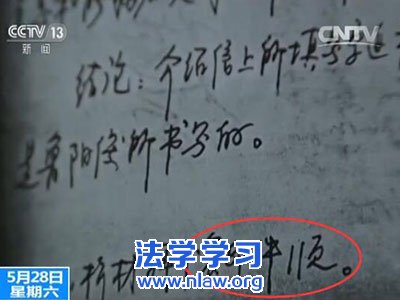 CCTV 13
新闻
CNTV
结论：介绍信上所填写字迹
是 阳 所书写的。
检材 共11页。
法学学习
www.nlaw.org
5月28日
星期六